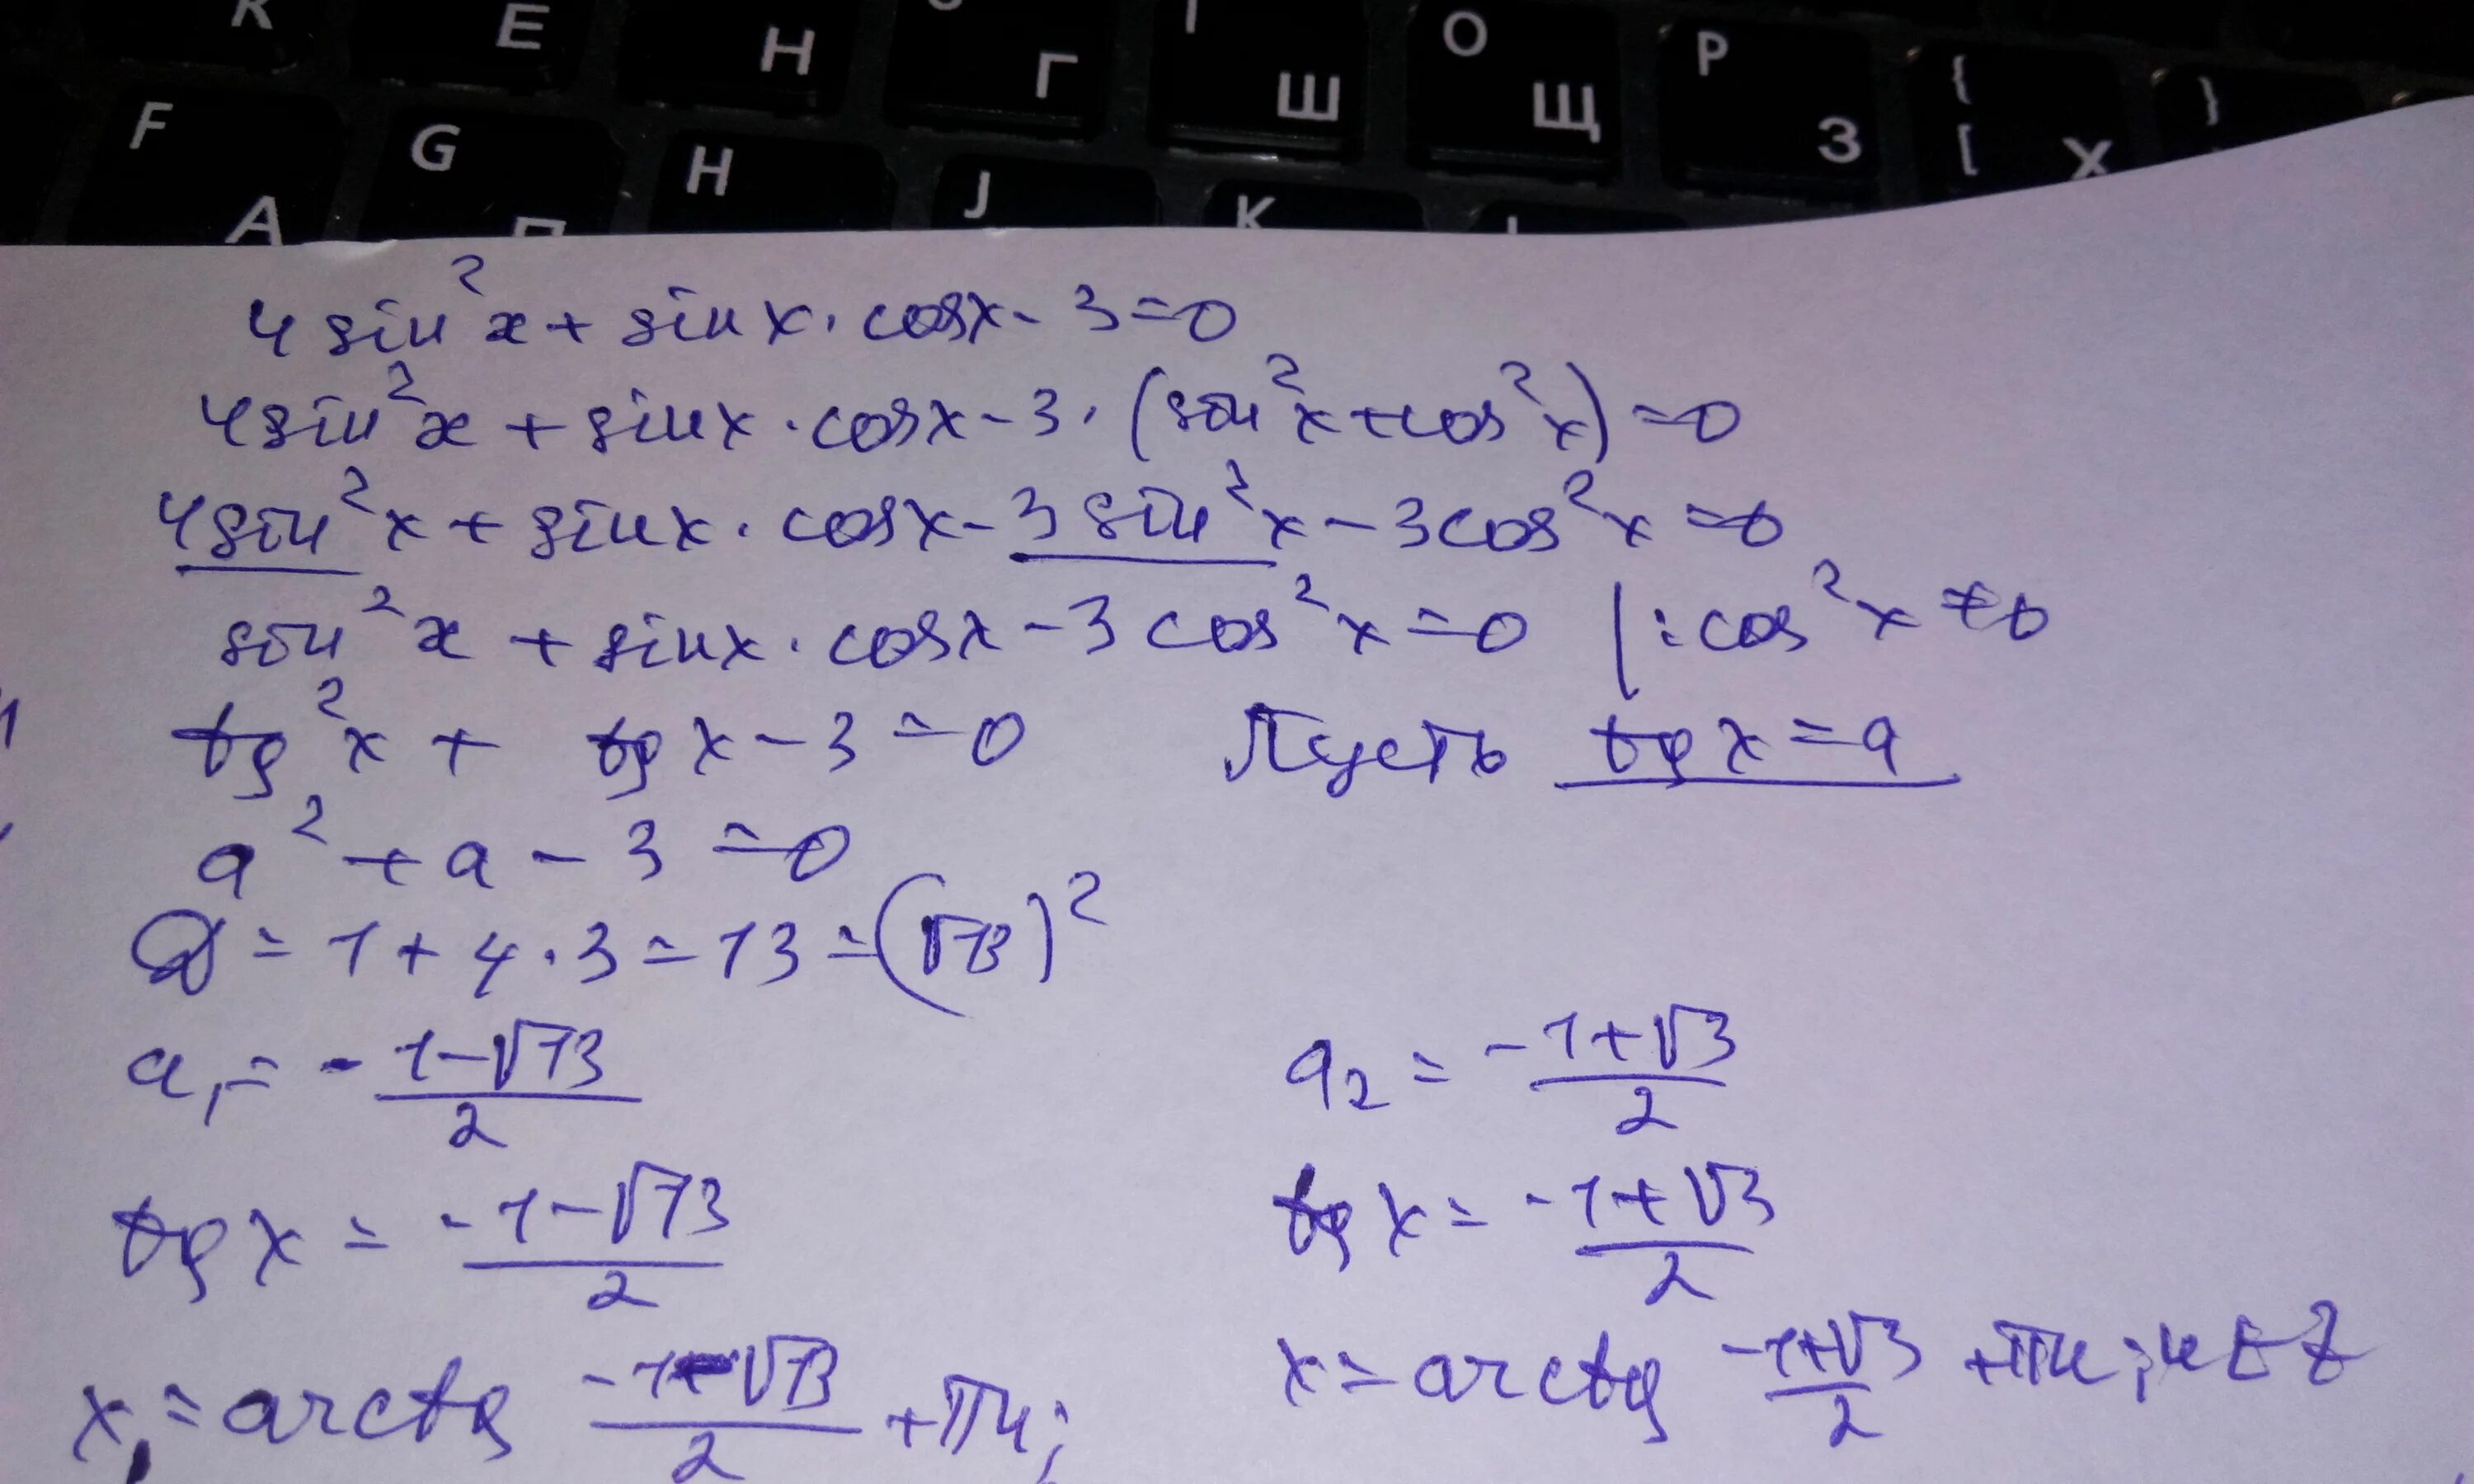 R E Н Г I Ш O Щ P З { [ Х }
F А G П H J K L
4 sin²x + sin x · cosx - 3 = 0
4sin²x + sin x · cosx - 3 · (sin²x + cos²x) = 0
4sin²x + sin x · cosx - 3 sin²x - 3cos²x = 0
sin²x + sin x · cosx - 3 cos²x = 0 | : cos²x ≠ 0
tg²x + tg x - 3 = 0 Пусть tg x = a
a² + a - 3 = 0
D = 1 + 4 · 3 = 13 = (√13)²
a₁ = - 1-√13 / 2 a₂ = -1+√3 / 2
tg x = -1-√13 / 2 tg x = -1+√3 / 2
x₁ = arctg -1-√13 / 2 + πn; x = arctg -1+√3 / 2 + πn; n ∈ Z